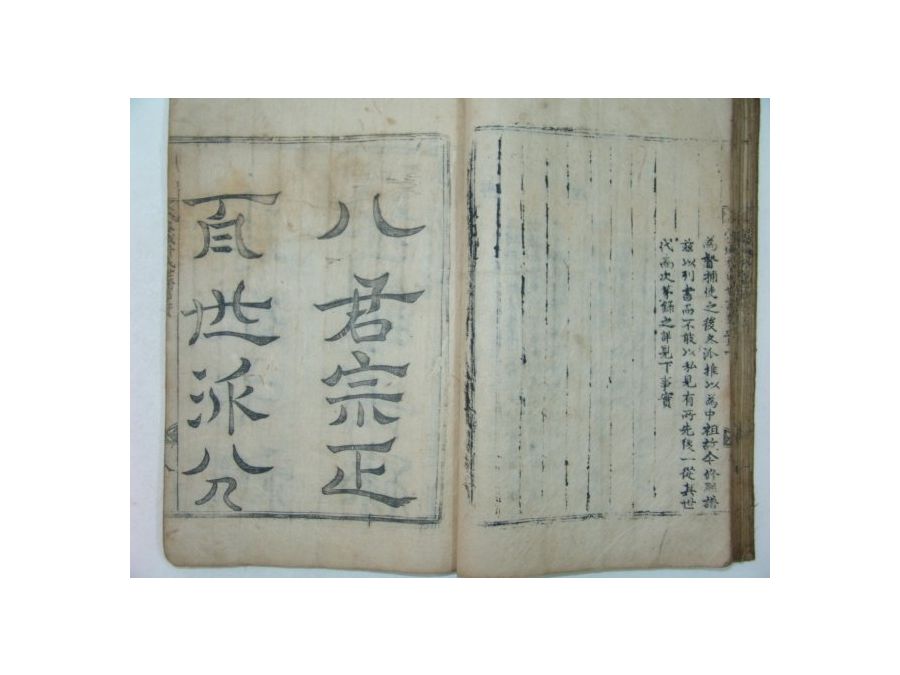 為督捕使之後各派推以為中祖故今修譜
玆以列書而不敢以私見有所先後一從其世
代而次第錄之詳見下事實
八君宗正
百世派分